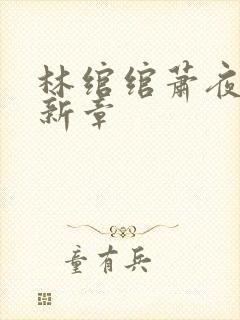 林绾绾萧夜
新章
童有兵